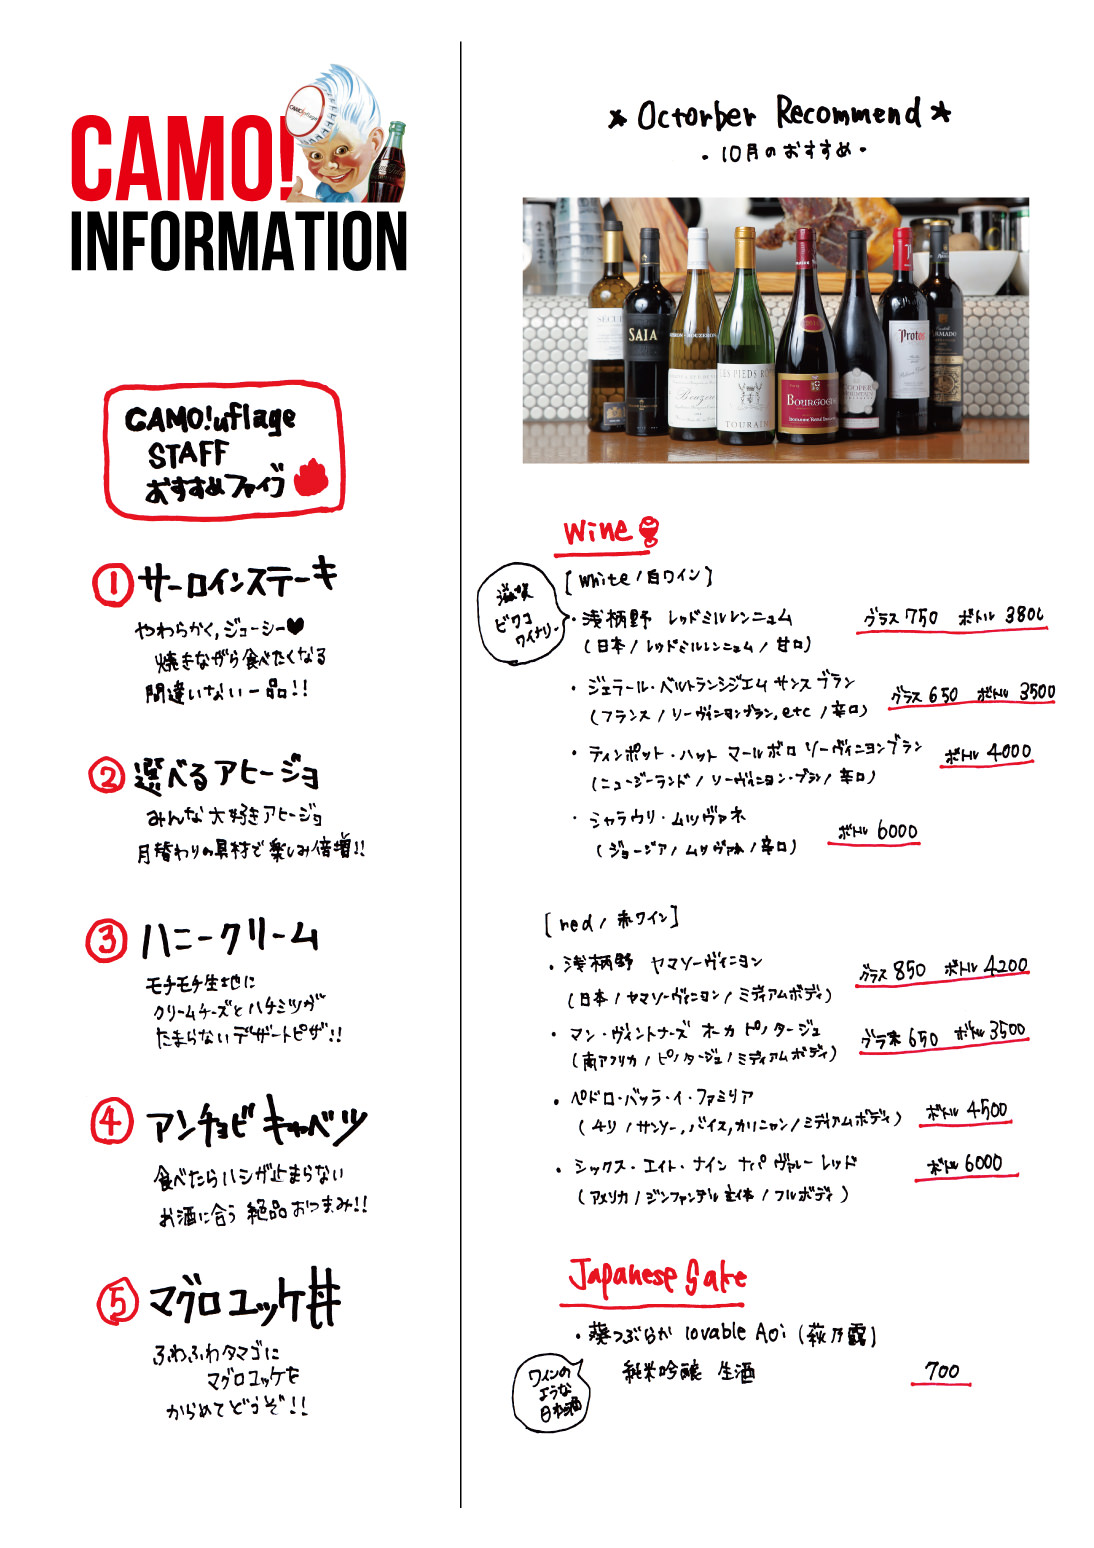 CAMO!
INFORMATION
CAMO!uflage
STAFF
おすすめファイブ
① サーロインステーキ
やわらかく,ジューシー♥
焼きながら食べたくなる
間違いない一品!!
② 選べるアヒージョ
みんな大好きアヒージョ
月替わりの具材で楽しみ倍増!!
③ ハニークリーム
モチモチ生地に
クリームチーズとハチミツが
たまらないデザートピザ!!
④ アンチョビキャベツ
食べたらハシが止まらない
お酒に合う絶品おつまみ!!
⑤ マグロユッケ丼
ふわふわタマゴに
マグロユッケを
からめてどうぞ!!
★ Octorber Recommend ★
- 10月のおすすめ -
SAIA
LES PIEDS
TOURAINE
BOURGOGNE
Protos
Wine
[White / 白ワイン]
滋賀
ビワコ
ワイナリー
・浅柄野 レッドミルレンニュム グラス 750 ボトル 3800
(日本 / レッドミルレンニュム / 甘口)
・ジェラール・ベルトランシジエム サンス ブラン グラス 650 ボトル 3500
(フランス / ソーヴィニヨンブラン, etc / 辛口)
・ティンポット・ハット マールボロ ソーヴィニヨンブラン ボトル 4000
(ニュージーランド / ソーヴィニヨン・ブラン / 辛口)
・シャラウリ・ムツヴァネ ボトル 6000
(ジョージア / ムツヴァネ / 辛口)
[red / 赤ワイン]
・浅柄野 ヤマソーヴィニヨン グラス 850 ボトル 4200
(日本 / ヤマソーヴィニヨン / ミディアムボディ)
・マン・ヴィントナーズ オーカ ピノタージュ グラス 650 ボトル 3500
(南アフリカ / ピノタージュ / ミディアムボディ)
・ペドロ・バッラ・イ・ファミリア ボトル 4500
(チリ / サンソー, パイス, カリニャン / ミディアムボディ)
・シックス・エイト・ナイン ナパ ヴァレー レッド ボトル 6000
(アメリカ / ジンファンデル主体 / フルボディ)
Japanese Sake
・葵つぶらか lovable Aoi (萩乃露)
純米吟醸 生酒 700
ワインの
ような
日本酒